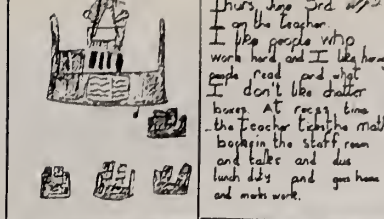 Thurs June 3rd
I am the teacher.
I like people who
work hard and I like hearing
people read and what
I don't like chatter
boxes. At recess time
the teacher the math
books in the staff room
and talks and dus
lunch duty and goes home
and marks work.